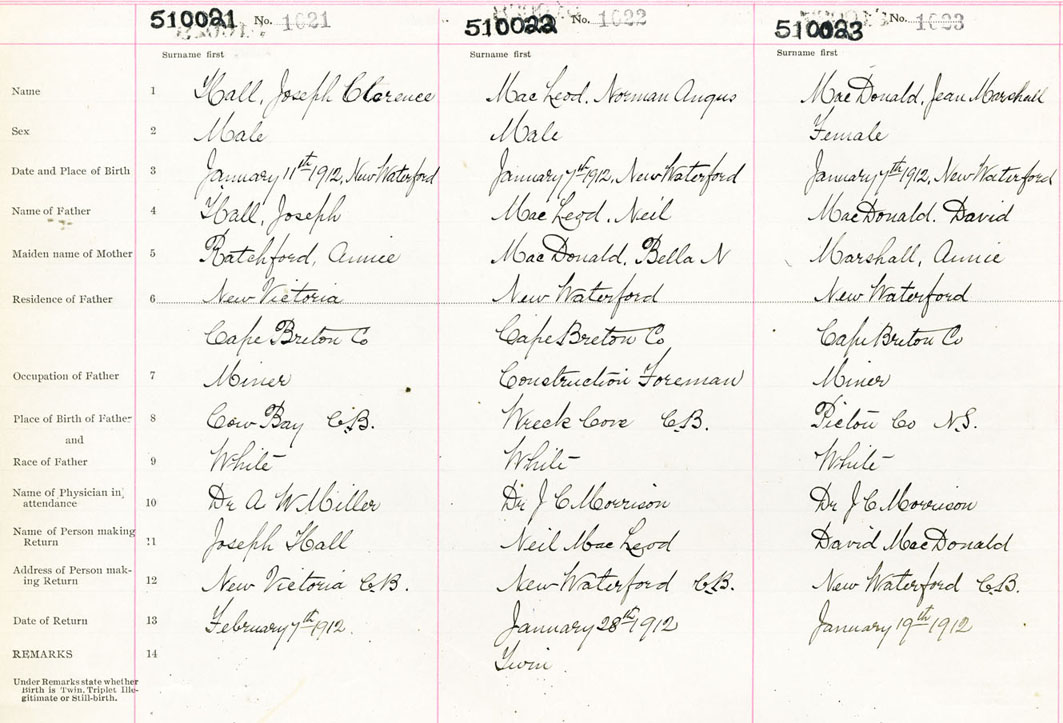 510021 No. 1021 510022 No. 1022 510023 No. 1023
Surname first Surname first Surname first
Name 1 Hall, Joseph Clarence Mac Leod, Norman Angus Mac Donald, Jean Marshall
Sex 2 Male Male Female
Date and Place of Birth 3 January 11th 1912, New Waterford January 7th 1912, New Waterford January 7th 1912, New Waterford
Name of Father 4 Hall, Joseph Mac Leod, Neil MacDonald, David
Maiden name of Mother 5 Ratchford, Annie MacDonald, Bella N Marshall, Annie
Residence of Father 6 New Victoria New Waterford New Waterford
Cape Breton Co Cape Breton Co Cape Breton Co
Occupation of Father 7 Miner Construction Foreman Miner
Place of Birth of Father 8 Cow Bay C.B. Wreck Cove C.B. Pictou Co N.S.
and
Race of Father 9 White White White
Name of Physician in attendance 10 Dr A W Miller Dr J C Morrison Dr J C Morrison
Name of Person making Return 11 Joseph Hall Neil Mac Leod David MacDonald
Address of Person mak-
ing Return 12 New Victoria C.B. New Waterford C.B. New Waterford C.B.
Date of Return 13 February 7th 1912. January 28th 1912 January 19th 1912
REMARKS 14 Twin
Under Remarks state whether
Birth is Twin, Triplet Ille-
gitimate or Still-birth.